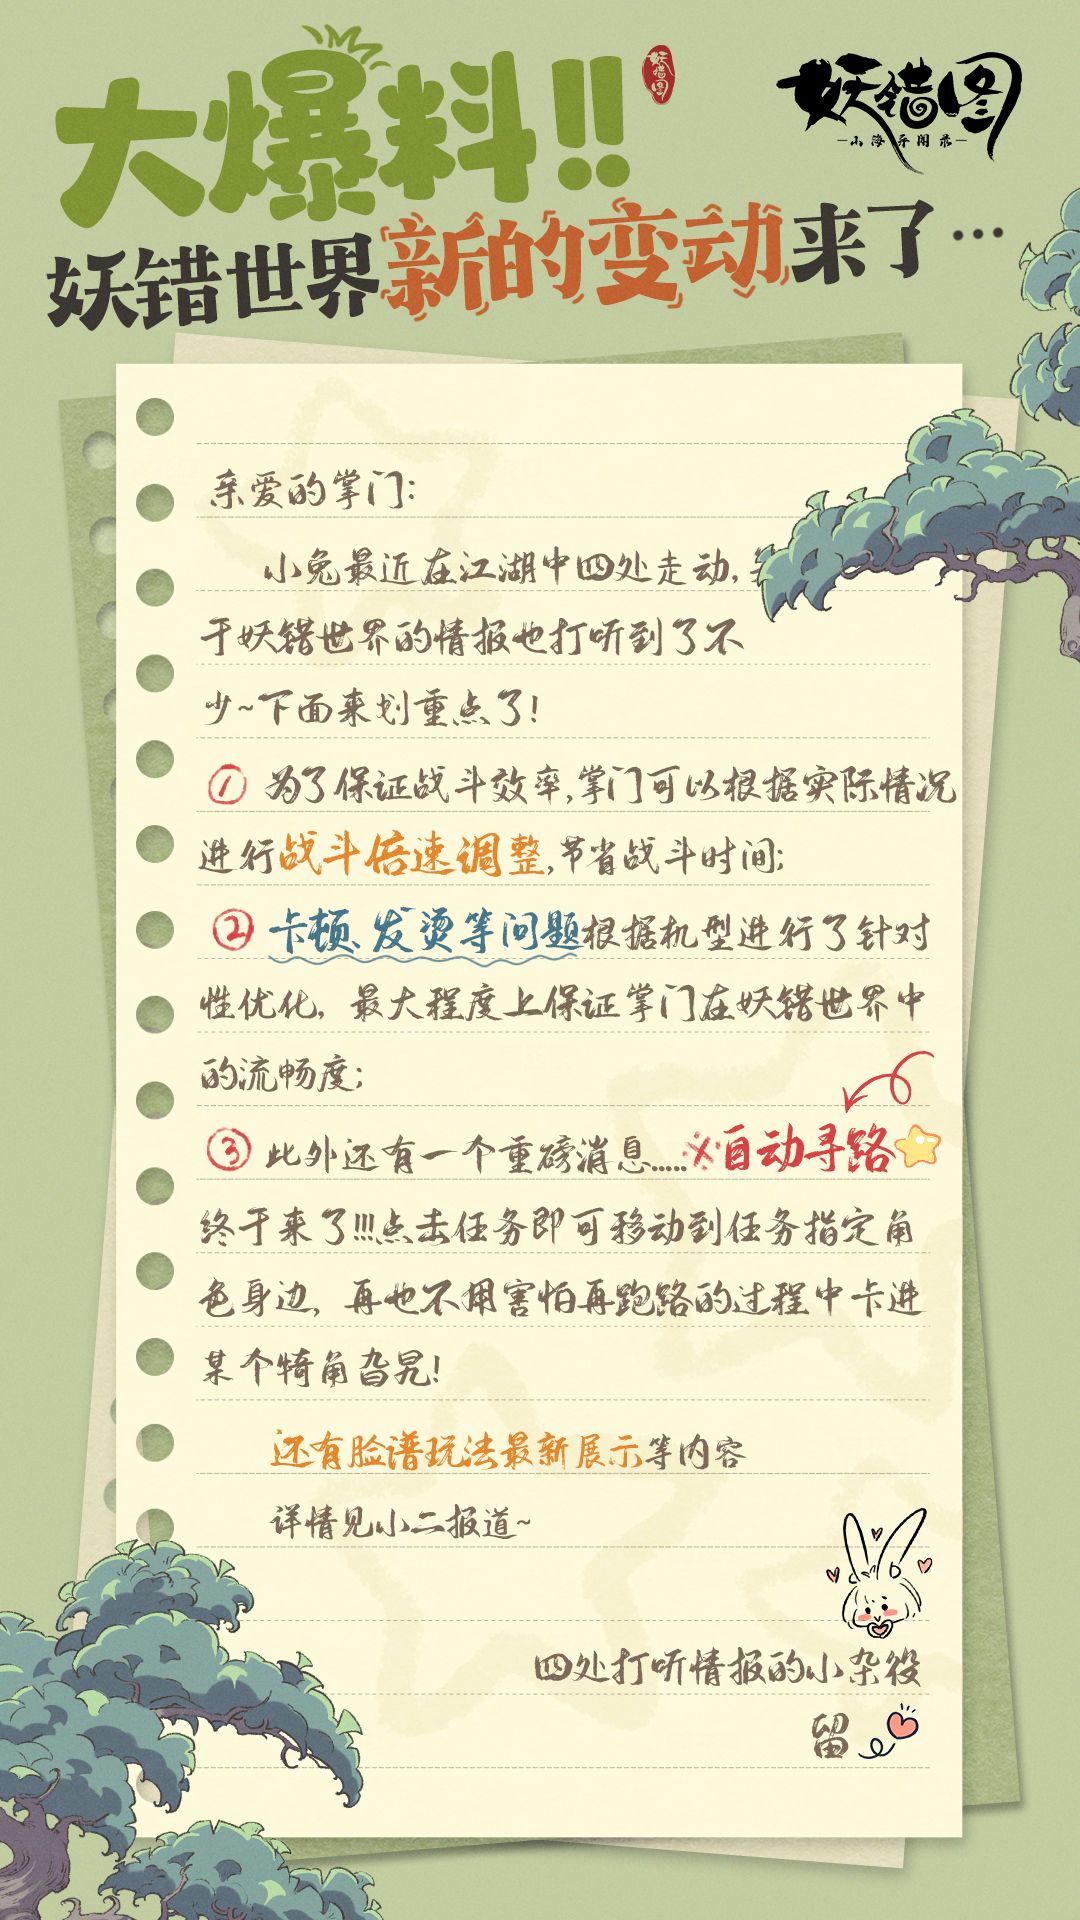 大爆料!!
妖错图
妖错图
山海异闻录
妖错世界新的变动来了…
亲爱的掌门:
小兔最近在江湖中四处走动,
于妖错世界的情报也打听到了不
少~下面来划重点了!
① 为了保证战斗效率,掌门可以根据实际情况
进行战斗倍速调整,节省战斗时间;
② 卡顿、发烫等问题根据机型进行了针对
性优化, 最大程度上保证掌门在妖错世界中
的流畅度;
③ 此外还有一个重磅消息.....※自动寻路
终于来了!!!点击任务即可移动到任务指定角
色身边, 再也不用害怕再跑路的过程中卡进
某个犄角旮旯!
还有脸谱玩法最新展示等内容
详情见小二报道~
四处打听情报的小杂役
留